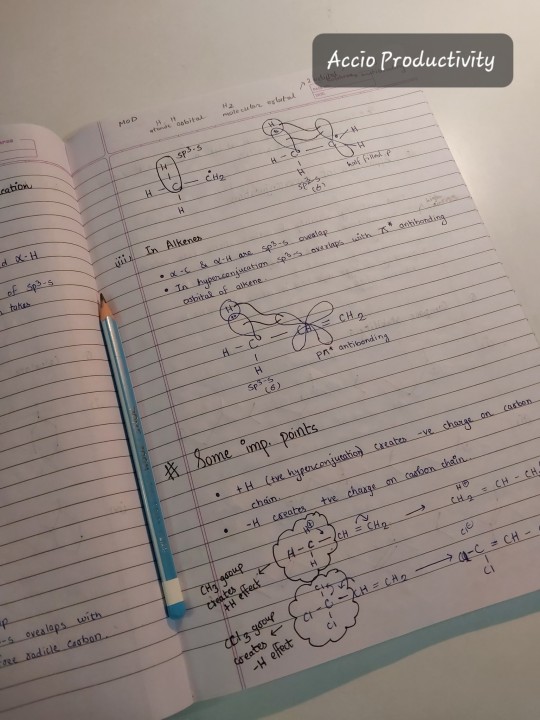 Accio Productivity
MOD H, H H2
atomic orbital molecular orbital
sp3-s
H
H - C - ĊH2
H
H
H - C C H
H H
sp3-s half filled p
(σ)
iii) In Alkenes
• α-C & α-H are sp3-s overlap
• In hyperconjucation sp3-s overlaps with π* antibonding
orbital of alkene.
H
H - C CH = CH2
H
pπ* antibonding
sp3-s
(σ)
# Some imp. points
• +H (+ve hyperconjucation) creates -ve charge on carbon
chain.
• -H creates +ve charge on carbon chain.
H
H - C - CH = CH2 → CH2 = CH - CH
H
CH3 group
creates
+H effect
Cl
Cl - C - CH = CH2 → C = CH -
Cl Cl
CCl3 group
creates
-H effect
cation
d α-H
of sp3-s
takes
-s overlaps with
free radicle carbon.